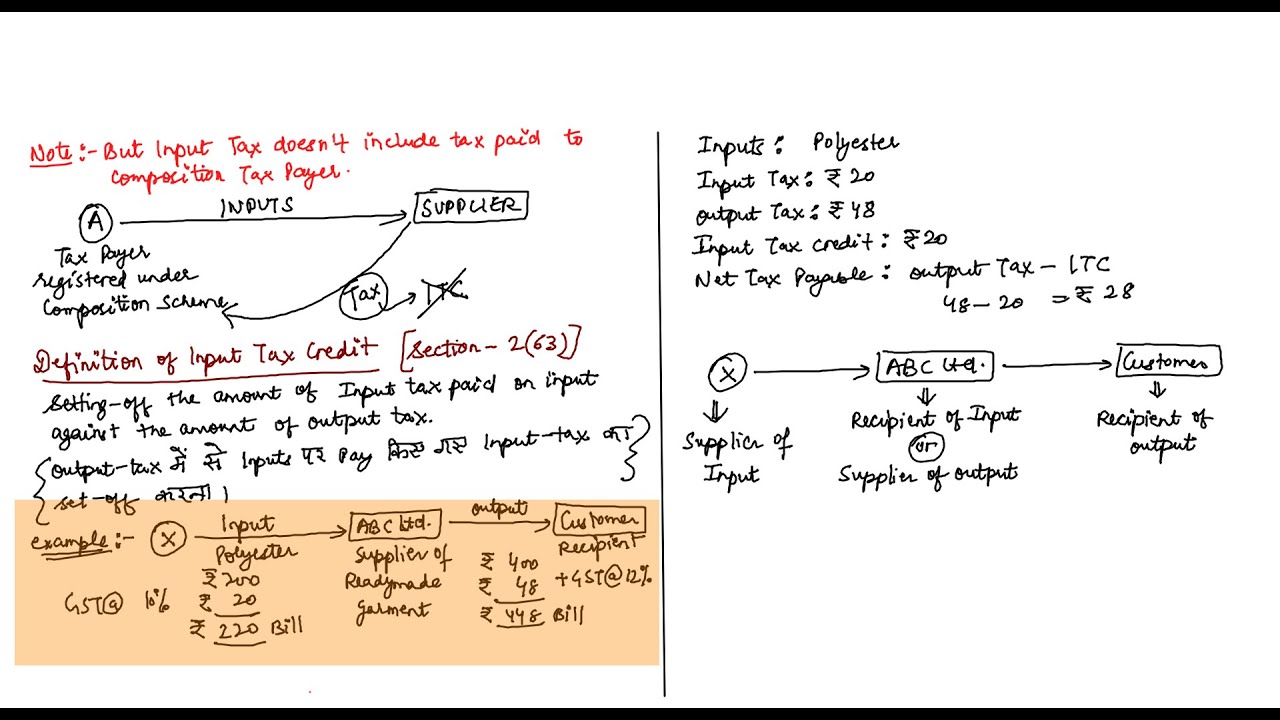 Note :- But Input Tax doesn't include tax paid to
composition Tax Payer.
A INPUTS SUPPLIER
Tax Payer
registered under
Composition Scheme
Tax ITC
Definition of Input Tax Credit [Section - 2(63)]
Setting-off the amount of Input tax paid on input
against the amount of output tax.
{ output-tax में से Inputs पर Pay किए गए Input-tax का
set-off करना । }
example :- X Input ABC Ltd. output Customer
Polyester Supplier of Recipient
₹ 200 Readymade ₹ 400
GST@ 10% ₹ 20 garment ₹ 48 + GST@ 12%
₹ 220 Bill ₹ 448 Bill
Inputs : Polyester
Input Tax : ₹ 20
output Tax : ₹ 48
Input Tax credit : ₹ 20
Net Tax Payable : output Tax - ITC
48 - 20 = ₹ 28
X ABC Ltd. Customer
Supplier of
Input
Recipient of Input
or
Supplier of output
Recipient of
output